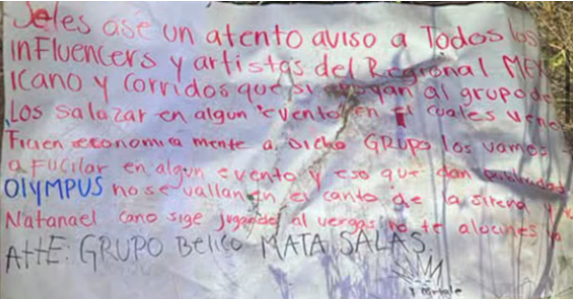 Seles ase un atento aviso a Todos los
inFluencers y artistas del Regional MEX
icano y corridos que si apoyan al grupo de
Los salazar en algun evento en el cuales vene
Ficien economica mente a dicho GRUPO los vamos
a FUCilar en algun evento y eso que dan publicidad
OlYMPUS no se vallan en el canto de la sirena y
Natanael cano sige jugando al vergas no te alocines
AttE: GRUPO Belico MATA SALAS.